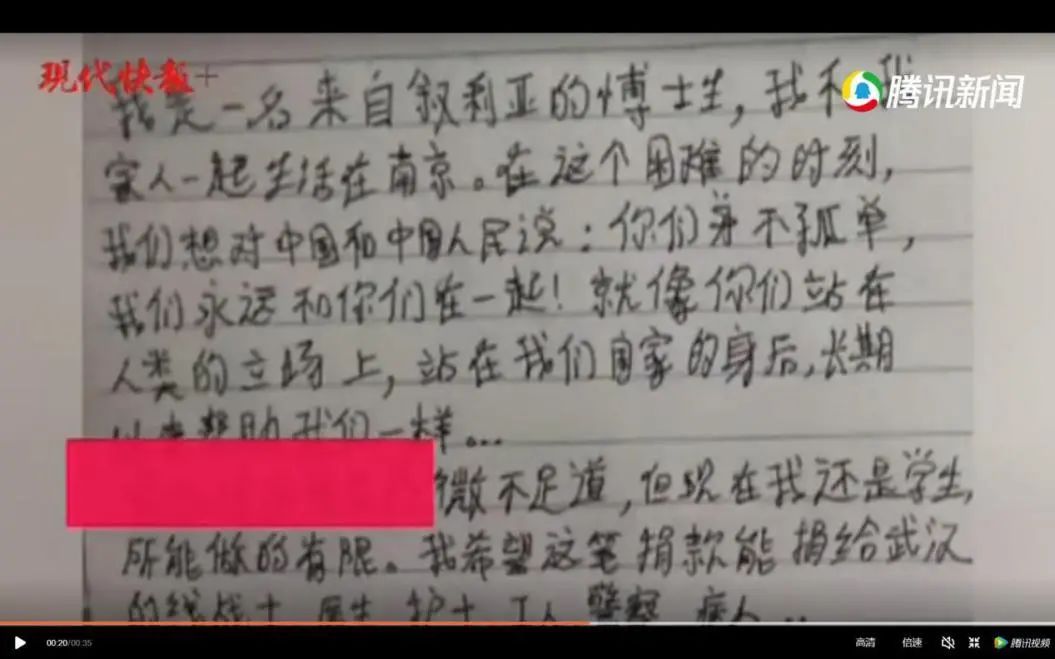 现代快报+
腾讯新闻
我是一名来自叙利亚的博士生，我和我
家人一起生活在南京。在这个困难的时刻，
我们想对中国和中国人民说：你们并不孤单，
我们永远和你们在一起！就像你们站在
人类的立场上，站在我们国家的身后，长期
以来帮助我们一样...
微不足道，但现在我还是学生，
所能做的有限。我希望这笔捐款能捐给武汉
的线战士 医生 护士 工人 警察 病人...
00:20/00:35
高清
倍速
腾讯视频